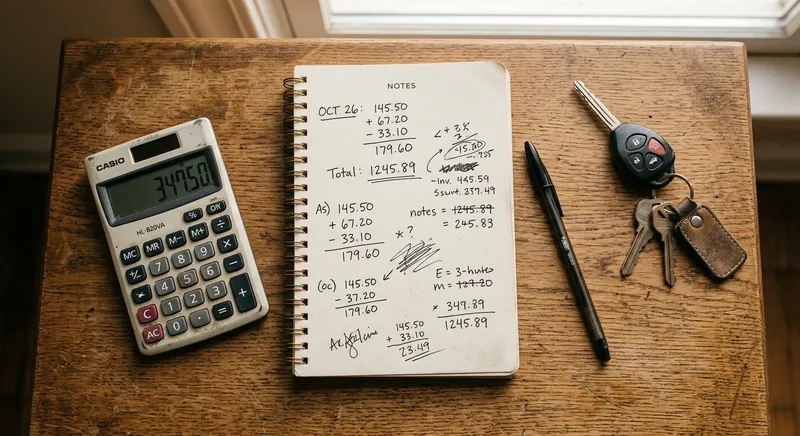 CASIO
34750
HL-820VA
% OFF
MC MR M- M+ ÷
7 8 9 ×
4 5 6 -
1 2 3 +
C
AC 0 . =
NOTES
OCT 26: 145.50
+ 67.20
- 33.10
179.60
Total: 1245.89
As) 145.50
+ 67.20
- 33.10
179.60
(oc) 145.50
- 37.20
179.60
145.50
+ 33.10
23.49
45.80
-Inv. 445.59
357.49
notes = 1245.89
= 245.83
* ?
E = 3-
m =
× 349.89
1245.89